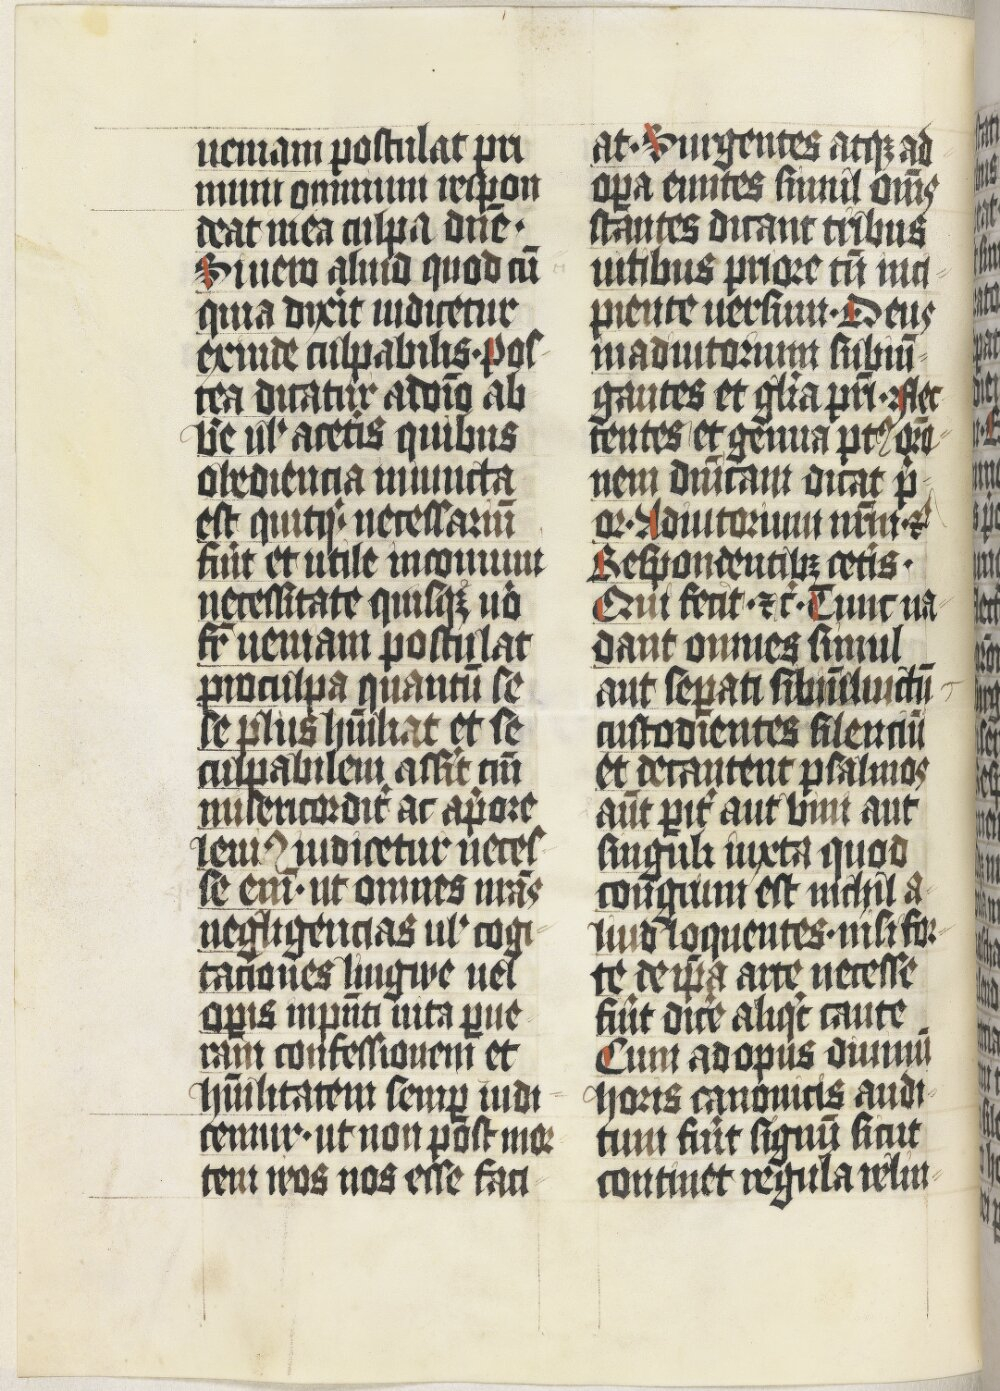 ueniam postulat pri
mum omnium respon
deat mea culpa dn̄e·
Si uero aliud quod cū
quia dixit iudicetur
exinde culpabilis· pos-
tea dicatur
ł acet̄is quibus
obediencia iniuncta
est necessariū
fūit et utile incomuni
necessitate quisqꝫ u̾o
fr̄ ueniam postulat
proculpa quantū se
se plus hūiliat et se
culpabilem tm̄
misericordit̾ ac
leui iudicetur neces-
se em̄· ut omnes nr̄as
negligencias ul̾ cogi-
taciones lingwe uel
op̄is uita
confessionem et
hūilitatem semꝑ iudi-
cemur· ut non post mor
tem reos nos esse faci
at· Surgentes atqꝫ ad
oꝑa eūntes simul om̄s
stantes dicant tribus
uicibus priore tn̄ inci-
piente uersum· Deus
inadiutorium
et gl̄ia pr̄i· flec
tentes et genua
nem dn̄icam dicat p̾-
or· Adiutorium nr̄m·
Respondentibꝫ cet̄is·
Qui fecit· ⁊ c̾· Tunc ua
dant omnes simul
aut seꝑati
custodientes silenciū
et decantent psalmos
aut bini aut
singuli iuxta quod
est nichil a-
liud loquentes· nisi for-
te de ip̄a arte necesse
fūit dic̄e aliq̾t caute
Cum ad opus diuinū
horis canonicis audi-
tum fūit signū sicut
continet regula relin-